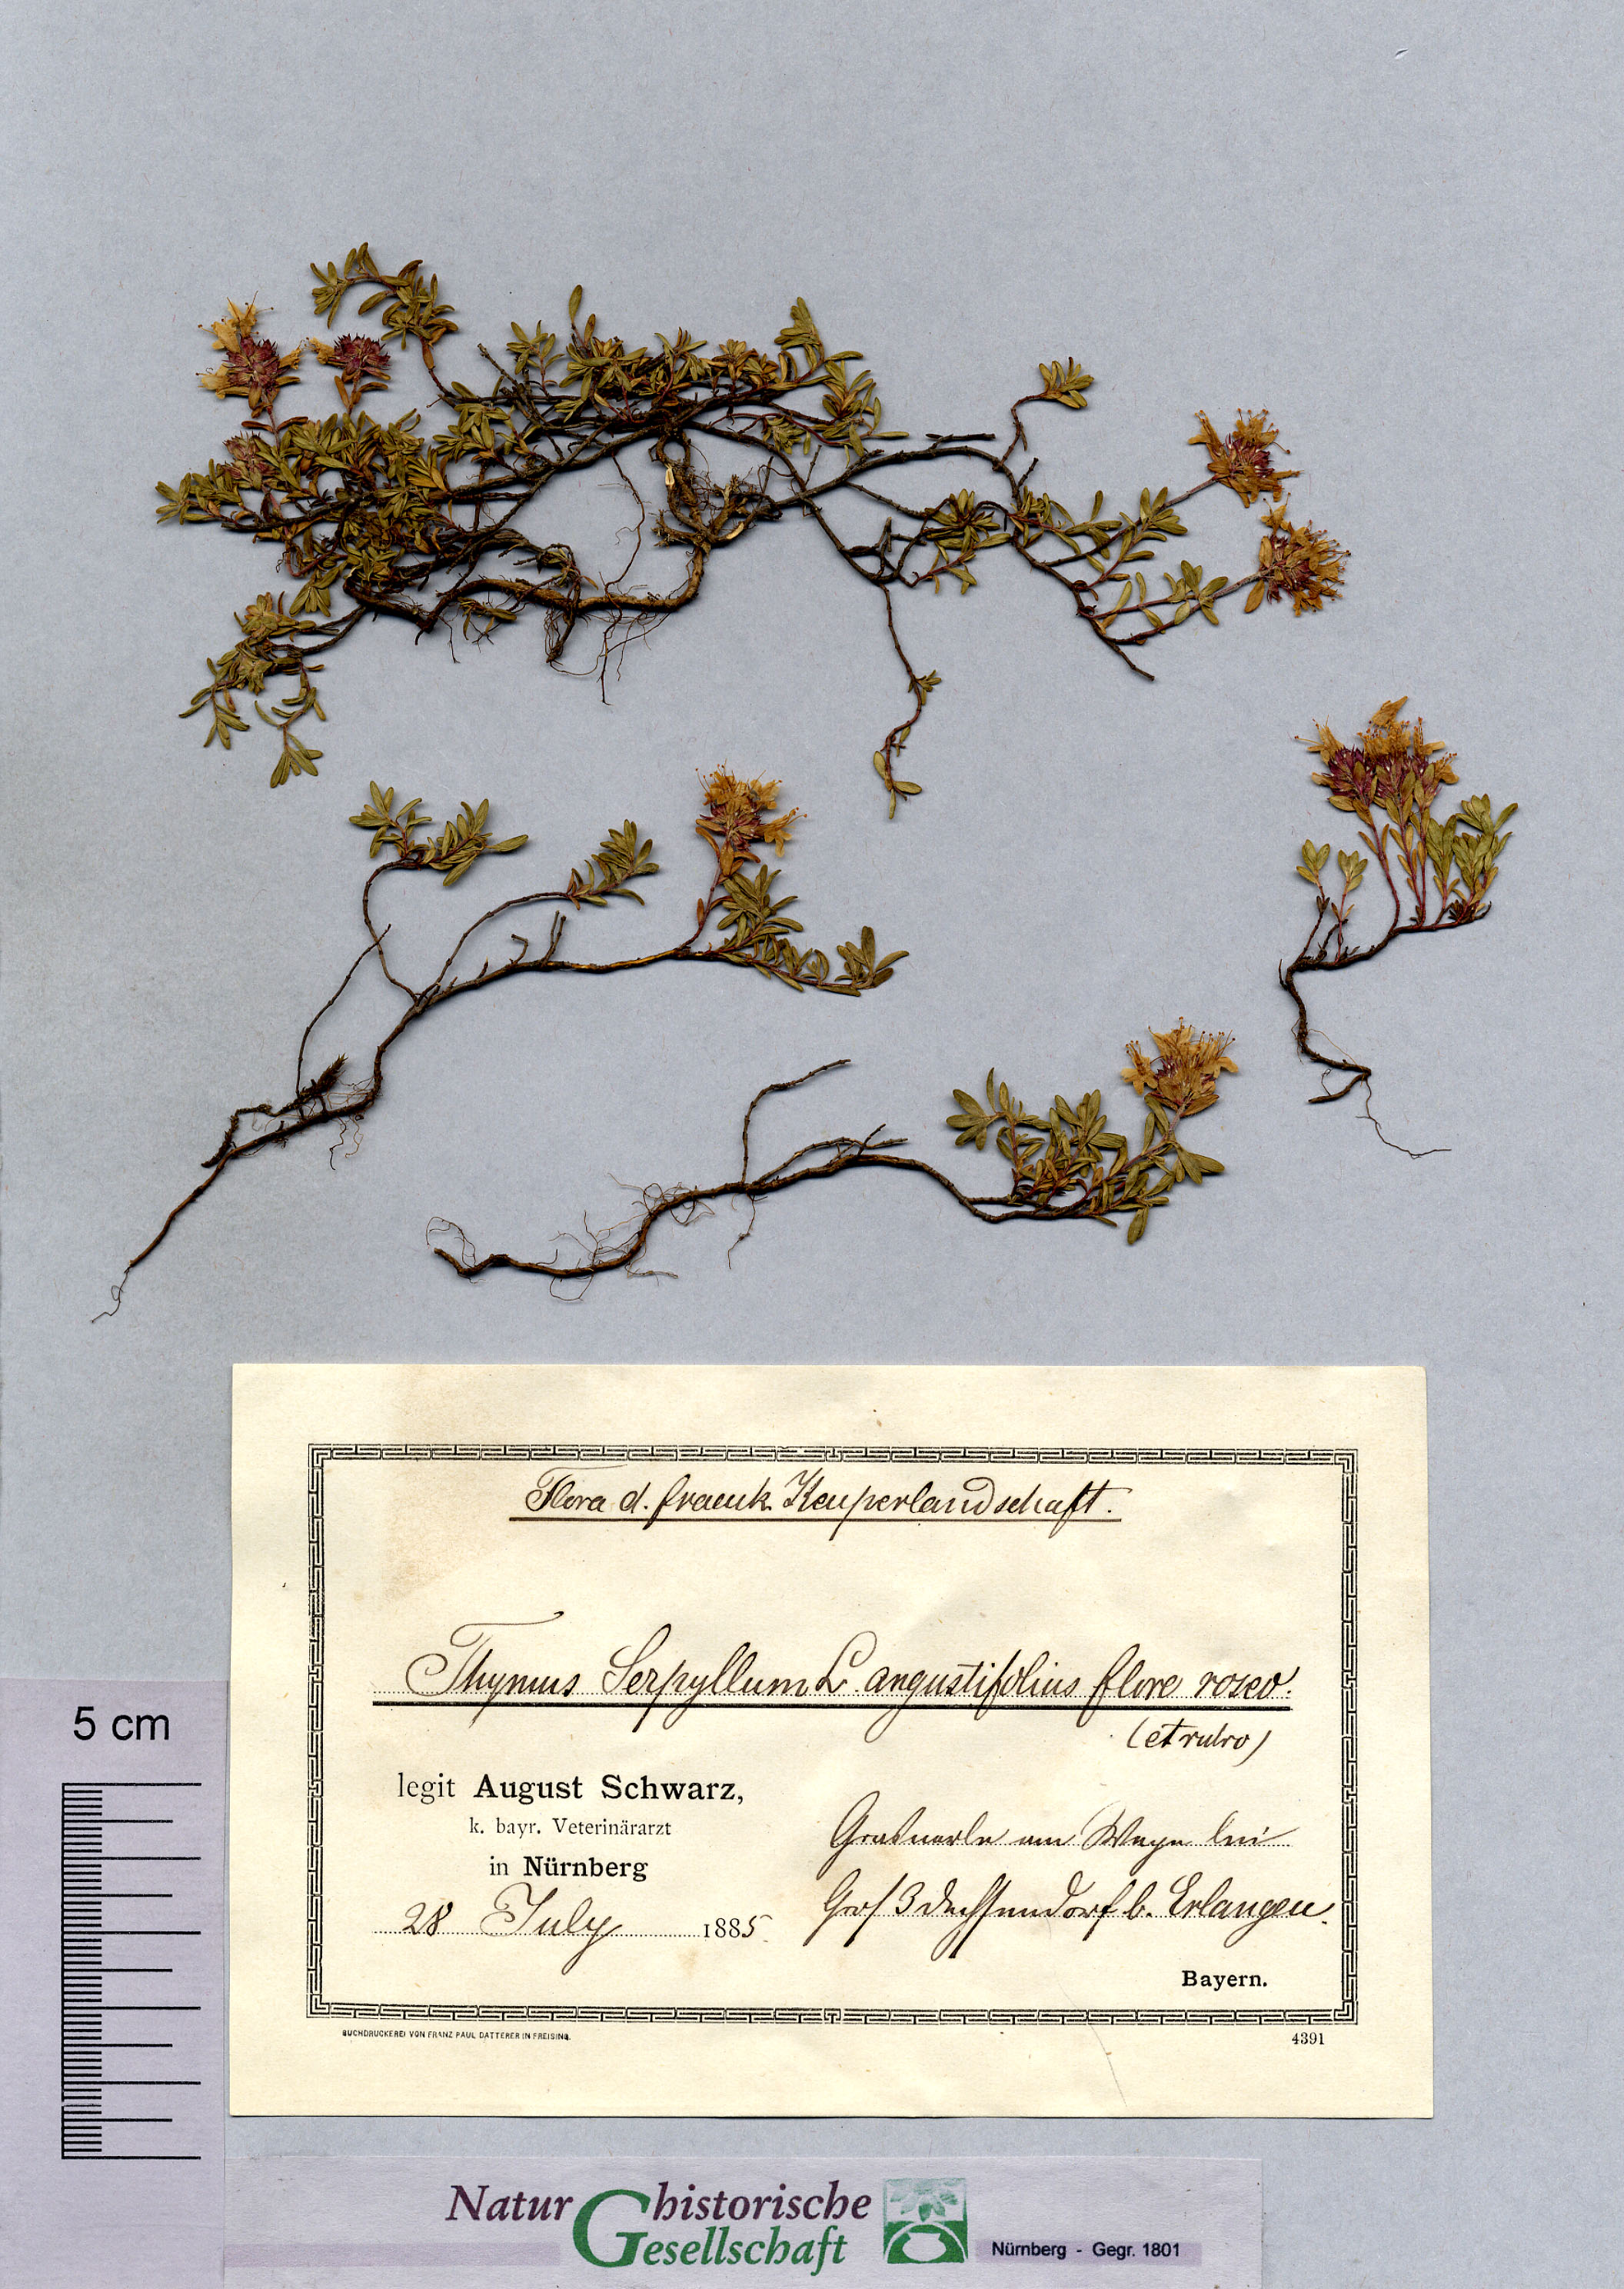 Flora d. fraenk. Keuperlandschaft.
Thymus Serpyllum L. angustifolius flore roseo.
(et rubro)
legit August Schwarz,
k. bayr. Veterinärarzt
in Nürnberg
28 July 1885.
am Wege bei
b. Erlangen.
Bayern.
BUCHDRUCKEREI VON FRANZ PAUL DATTERER IN FREISING.
4391
5 cm
Naturhistorische
Gesellschaft
Nürnberg - Gegr. 1801